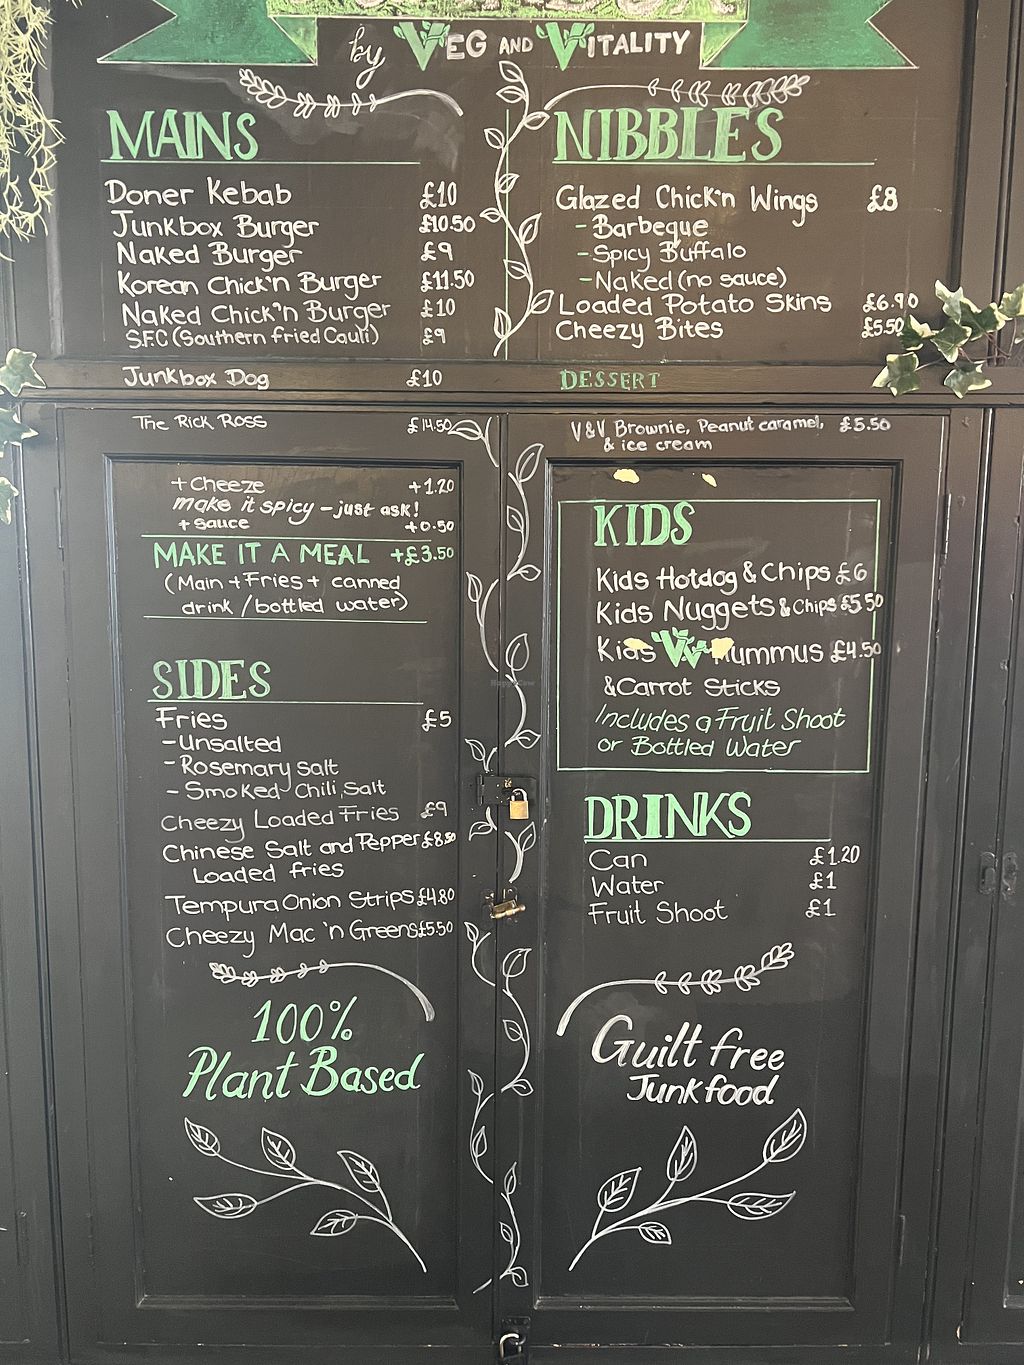 by Veg and Vitality
MAINS
Doner Kebab £10
Junkbox Burger £10.50
Naked Burger £9
Korean Chick'n Burger £11.50
Naked Chick'n Burger £10
S.F.C (Southern fried Cauli) £9
Junkbox Dog £10
The Rick Ross £14.50
+ Cheeze +1.20
make it spicy - just ask!
+ sauce +0.50
MAKE IT A MEAL +£3.50
(Main + Fries + canned
drink / bottled water)
SIDES
Fries £5
- Unsalted
- Rosemary Salt
- Smoked Chili Salt
Cheezy Loaded Fries £9
Chinese Salt and Pepper £8.50
Loaded fries
Tempura Onion Strips £4.80
Cheezy Mac 'n Greens £5.50
100%
Plant Based
NIBBLES
Glazed Chick'n Wings £8
- Barbeque
- Spicy Buffalo
- Naked (no sauce)
Loaded Potato Skins £6.90
Cheezy Bites £5.50
DESSERT
V&V Brownie, Peanut caramel, £5.50
& ice cream
KIDS
Kids Hotdog & Chips £6
Kids Nuggets & Chips £5.50
Kids VV Hummus £4.50
& Carrot Sticks
Includes a Fruit Shoot
or Bottled Water
DRINKS
Can £1.20
Water £1
Fruit Shoot £1
Guilt free
Junk food